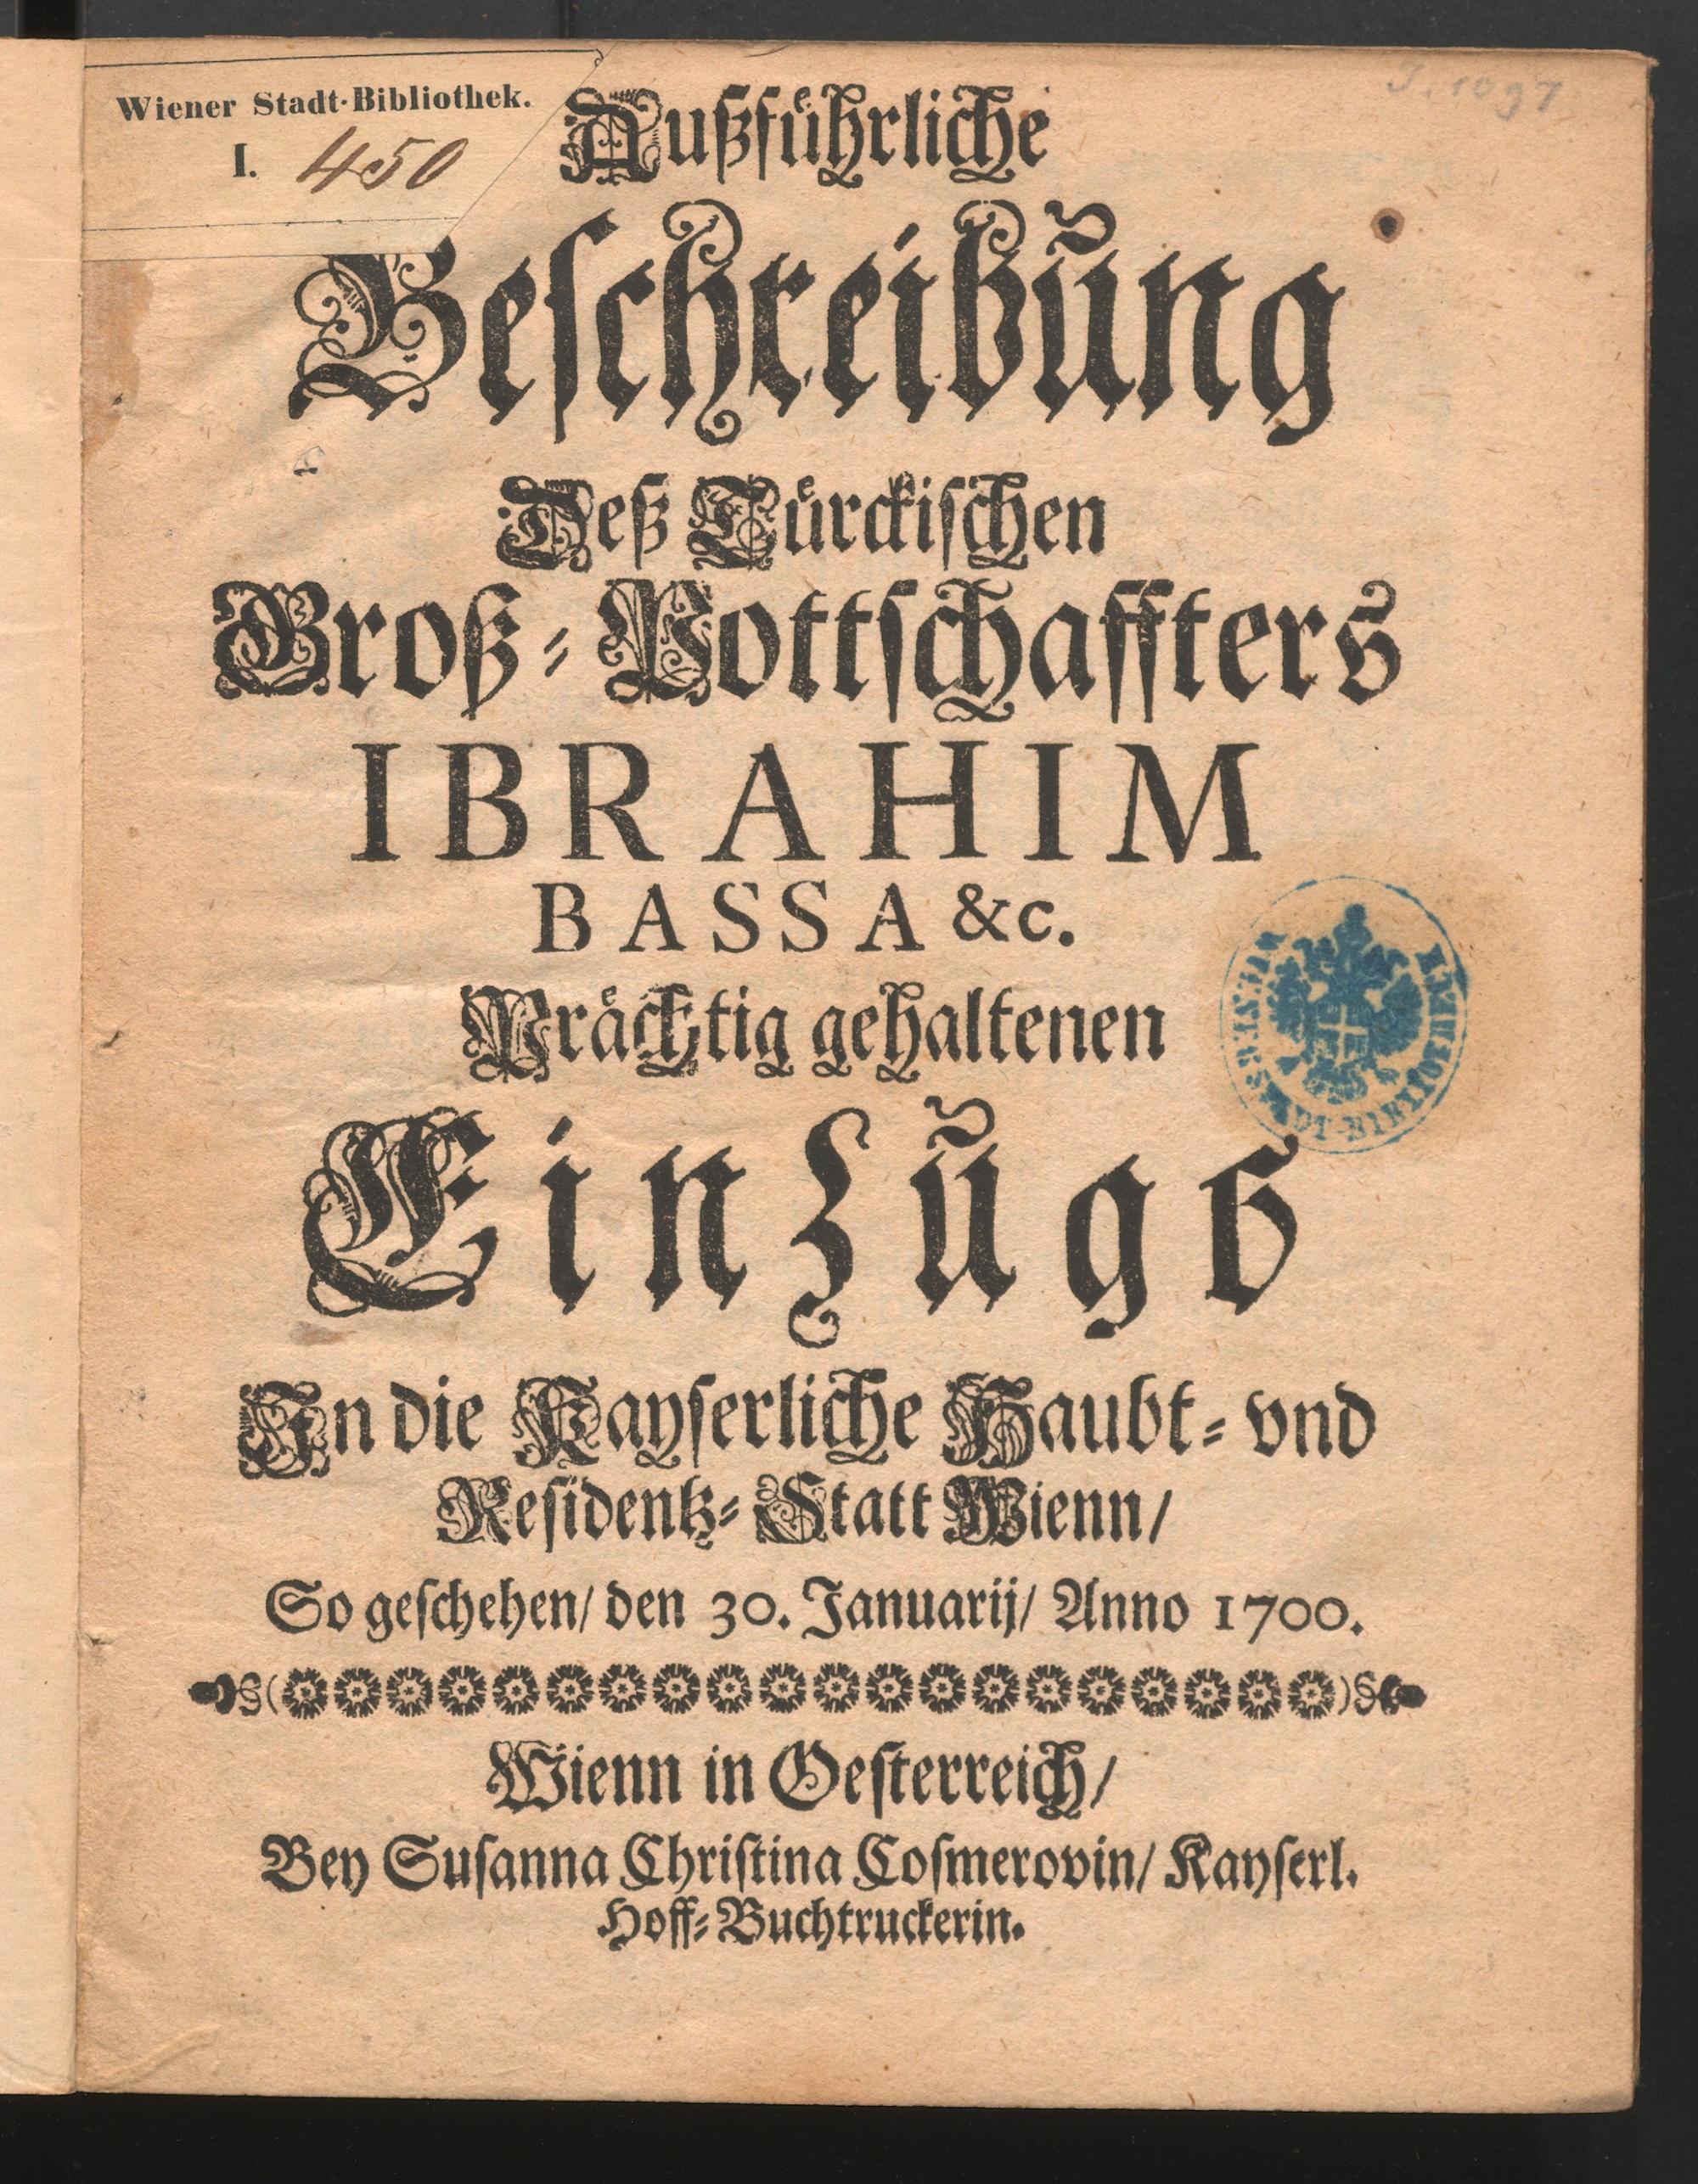 J. 1097
Wiener Stadt-Bibliothek.
I. 450
Außführliche
Beschreibung
Deß Türckischen
Groß-Pottschaffters
IBRAHIM
BASSA &c.
Prächtig gehaltenen
Einzugs
In die Kayserliche Haubt- vnd
Residentz-Statt Wienn/
So geschehen/ den 30. Januarij/ Anno 1700.
Wienn in Oesterreich/
Bey Susanna Christina Cosmerovin/ Kayserl.
Hoff-Buchtruckerin.
WIENER STADT-BIBLIOTHEK